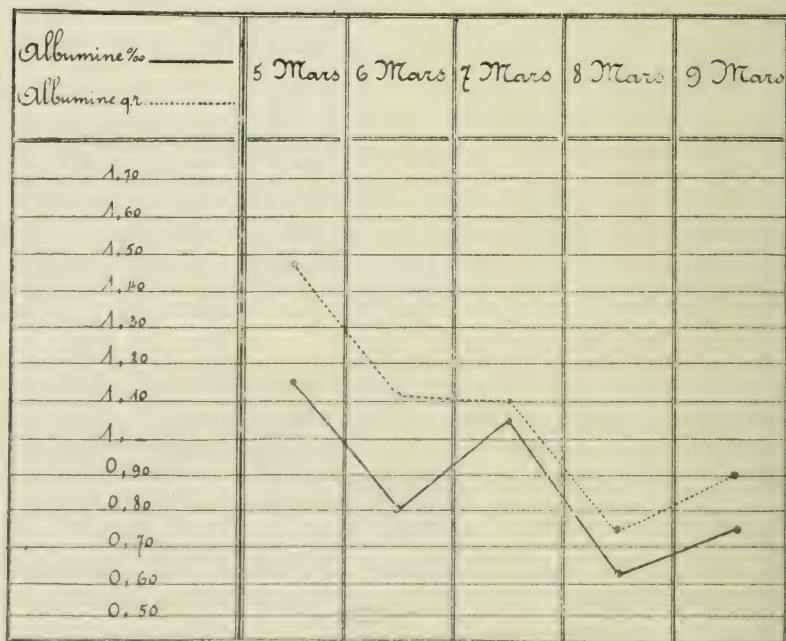 Albumine ‰
Albumine gr.
5 Mars 6 Mars 7 Mars 8 Mars 9 Mars
1,70
1,60
1,50
1,40
1,30
1,20
1,10
1,
0,90
0,80
0,70
0,60
0,50